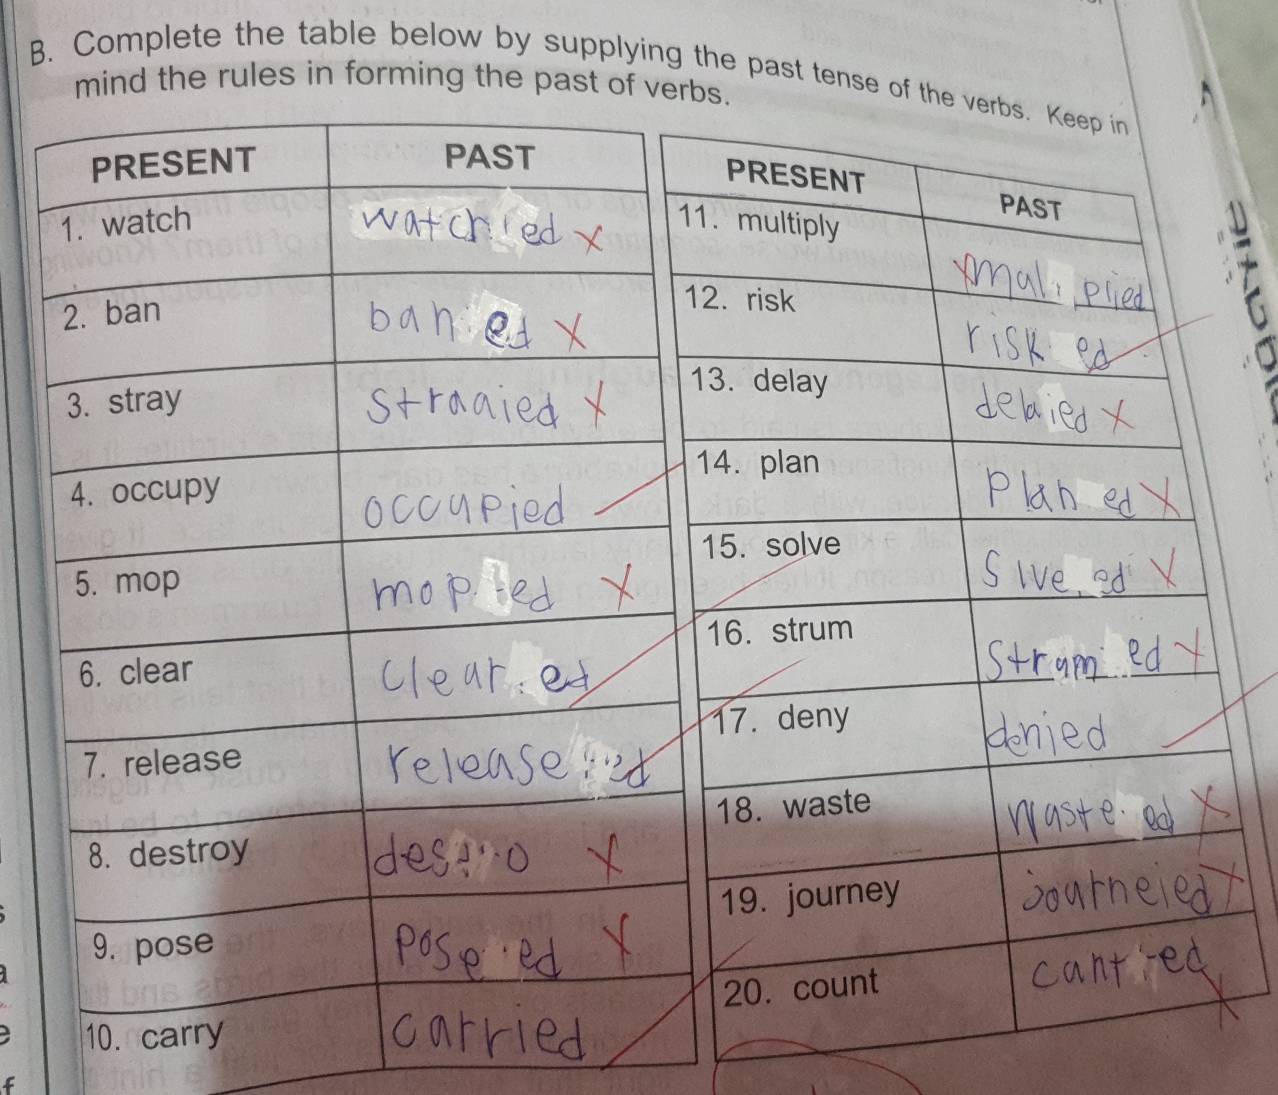 B. Complete the table below by supplying the past tense of the verbs. Keep in
mind the rules in forming the past of verbs.
PRESENT PAST
1. watch watchied x
2. ban baned x
3. stray straaied x
4. occupy occupied
5. mop moped x
6. clear cleared
7. release released
8. destroy x
9. pose poseed x
10. carry carried
PRESENT PAST
11. multiply x maliplied
12. risk risked
13. delay delaied x
14. plan planed x
15. solve x
16. strum stramed x
17. deny denied
18. waste wasteed x
19. journey journeied x
20. count canted x